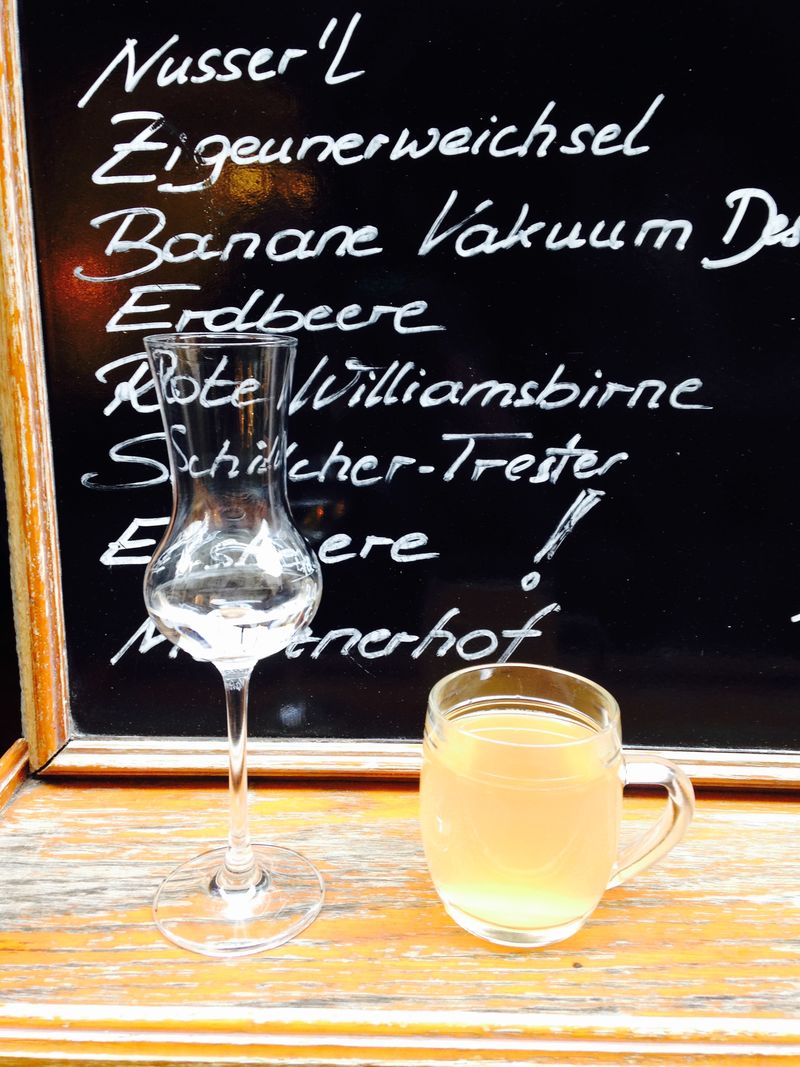 Nusser'L
Zigeunerweichsel
Banane Vakuum Des
Erdbeere
Rote Williamsbirne
Schilcher-Trester
!